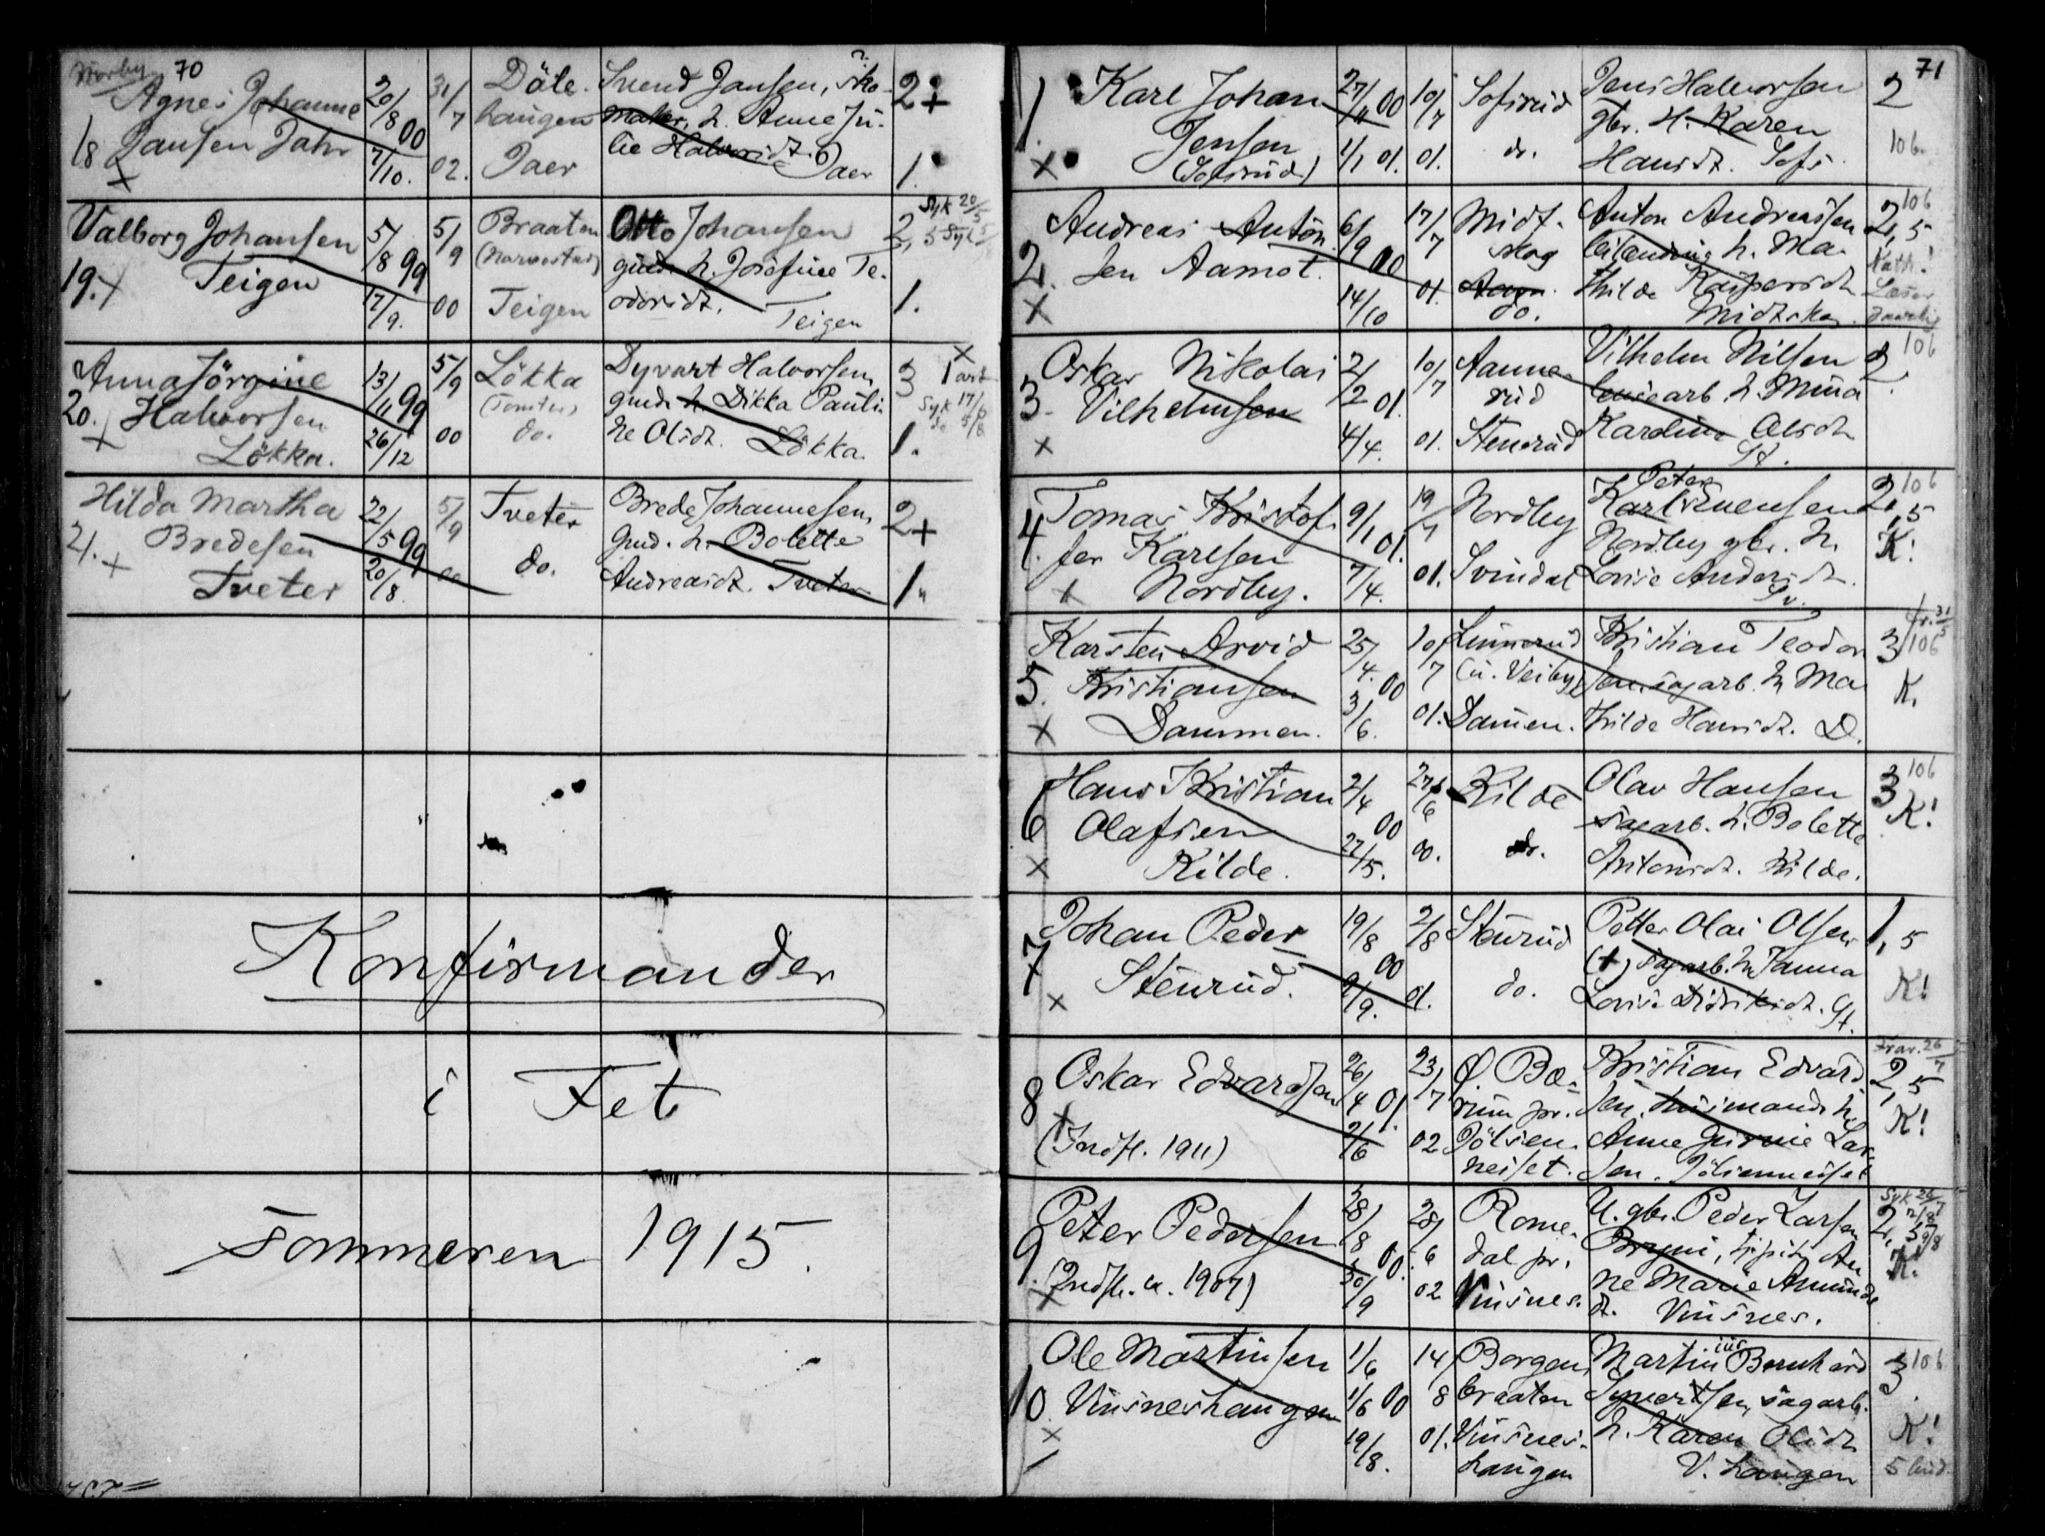 70
18 Agnes Johanne 20/8 00 31/7 Döle- Svend Jansen, sko- 2+
Jansen Jahr 7/10. 02. haugen maker, h. Anne Ju-
Jaer lie Halvorsdt. Jaer 1.
Valborg Johansen 5/8 99 5/9 Braaten Otto Johansen 2,5 Syk 20/5
19. Teigen 17/9. 00 (Narvestad) gmd. h. Josefine Te-
Teigen odorsdt. Teigen 1.
Anna Jörgine 13/11 99 5/9 Lökka Dyvart Halvorsen, 3
20. Halvorsen 26/12 00 (Tomter) gmd. h. Dikka Pauli- Syk 17/6
Lökka. do. ne Olsdt. Lökka. 1.
Hilda Martha 22/5 99 5/9 Tveter Brede Johannesen, 2+
21. Bredesen 20/8 00 do. gmd. h. Bolette
Tveter Andreasdt. Tveter 1.
Konfirmander
i Fet
sommeren 1915.
71
1. Karl Johan 27/11 00 10/7 Sofirud Jens Halvorsen 2
Jensen 1/1 01. 01. do. gbr. H. Karen 106.
(Sofirud) Hansdt. Sofi
Andreas Anton 6/9 00 17/7 Midt- Anton Andreassen 2,5 106
2. sen Aamot. 14/10 01. skog h. Ma-
do. thilde Kaspersdt.
Midtskog.
Oskar Nikolai 2/2 01. 10/7 Aanne- Vilhelm Nilsen 2. 106
3. Vilhelmsen 4/4. 01. rud h. Mina
Stenerud Karoline Olsdt.
St.
Peter
4. Tomas Kristof- 9/1 01. 19/7 Nordby Karl Evensen 2,5 106
fer Karlsen 7/4. 01. Svindal Nordby gbr. h. K!
Nordby. Lovise Andersdt.
Sv.
Karsten Arvid 25/4. 00 10/7 Linnerud Kristian Teodor 3 106
5. Kristiansen 3/6. 01. (u. Veiby) sen, sagarb. h. Ma K.
Dammen. Dammen. thilde Hansdt. D.
Hans Kristian 2/4 00 27/6 Kilde Olav Hansen 3 106
6 Olafsen 27/5. 00. do. sagarb. h. Bolette K!
Kilde. Antonsdt. Kilde.
Johan Peder 19/8 00 2/8 Stenrud Petter Olai Olsen 1,5
7 Stenrud. 9/9. 01. do. (+) sagarb. h. Janna K!
Lovise Didriksdt. St.
8 Oskar Edvardsen 26/4 01. 23/7 Ø. Bæ- Kristian Edvard- 2,5 Frav. 26/7
(Indfl. 1911) 2/6 02 rum pr. sen, husmand h. K!
Jölsen- Anne Lar-
neiset. sen. Jölsenneiset
Peter Pedersen 28/8 00. 28/6 Rome- U. gbr. Peder Larsen 2,5
9. (Indfl. a. 1907) 30/9 02 dal pr. tjpik. An K.
Vinsnes. ne Marie Amunds
dt. Vinsnes.
Ole Martinsen 1/6 14/8 Borgen- Martinius Bernhard 3 106
10 Vinsneshaugen 1/6 00 braaten Syvertsen, sagarb. K!
19/8. 01. Vinsnes- h. Karen Olsdt.
haugen V. haugen